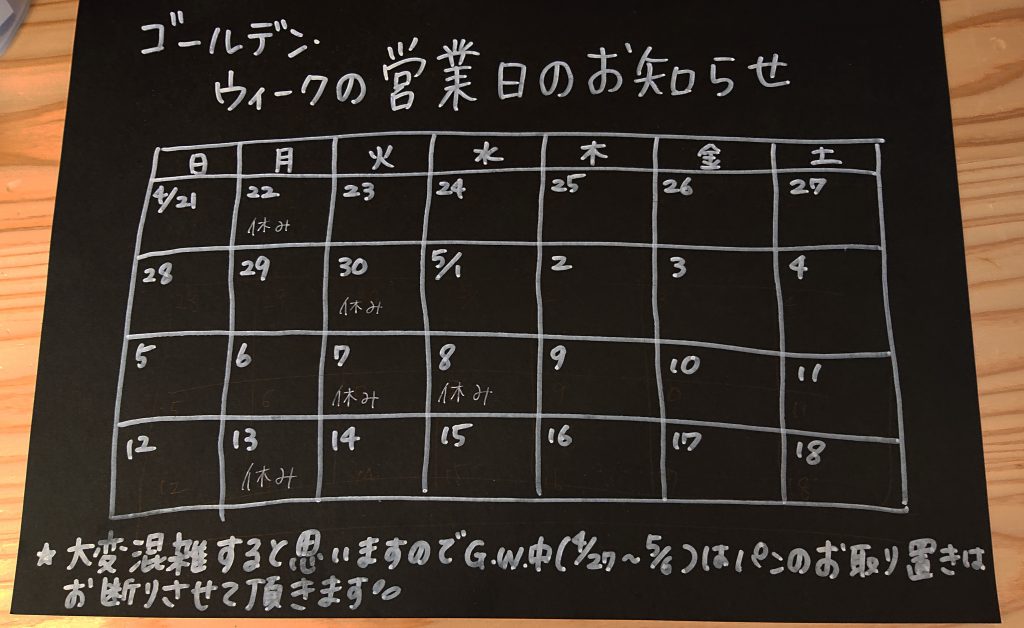 ゴールデン
ウィークの営業日のお知らせ
日 月 火 水 木 金 土
4/21 22 23 24 25 26 27
休み
28 29 30 5/1 2 3 4
休み
5 6 7 8 9 10 11
休み 休み
12 13 14 15 16 17 18
休み
★大変混雑すると思いますのでG.W.中(4/27～5/6)はパンのお取り置きは
お断りさせて頂きます。